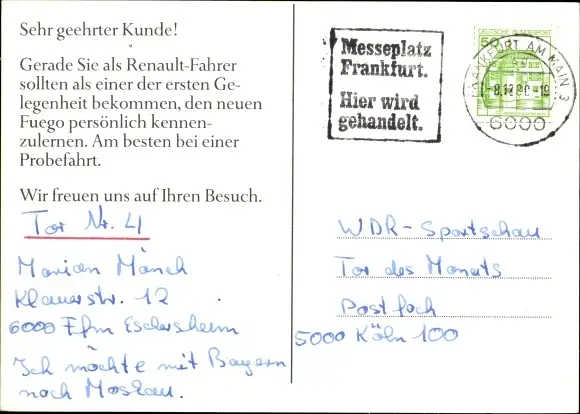 Sehr geehrter Kunde!
Gerade Sie als Renault-Fahrer
sollten als einer der ersten Ge-
legenheit bekommen, den neuen
Fuego persönlich kennen-
zulernen. Am besten bei einer
Probefahrt.
Wir freuen uns auf Ihren Besuch.
Tor Nr. 4
Marian Mönch
Klauerstr. 12
6000 Ffm Eschersheim
Ich möchte mit Bayern
nach Moskau.
Messeplatz
Frankfurt.
Hier wird
gehandelt.
DEUTSCHE BUNDESPOST
50
FRANKFURT AM MAIN 3
-8.12.80-19
6000
WDR-Sportschau
Tor des Monats
Postfach
5000 Köln 100